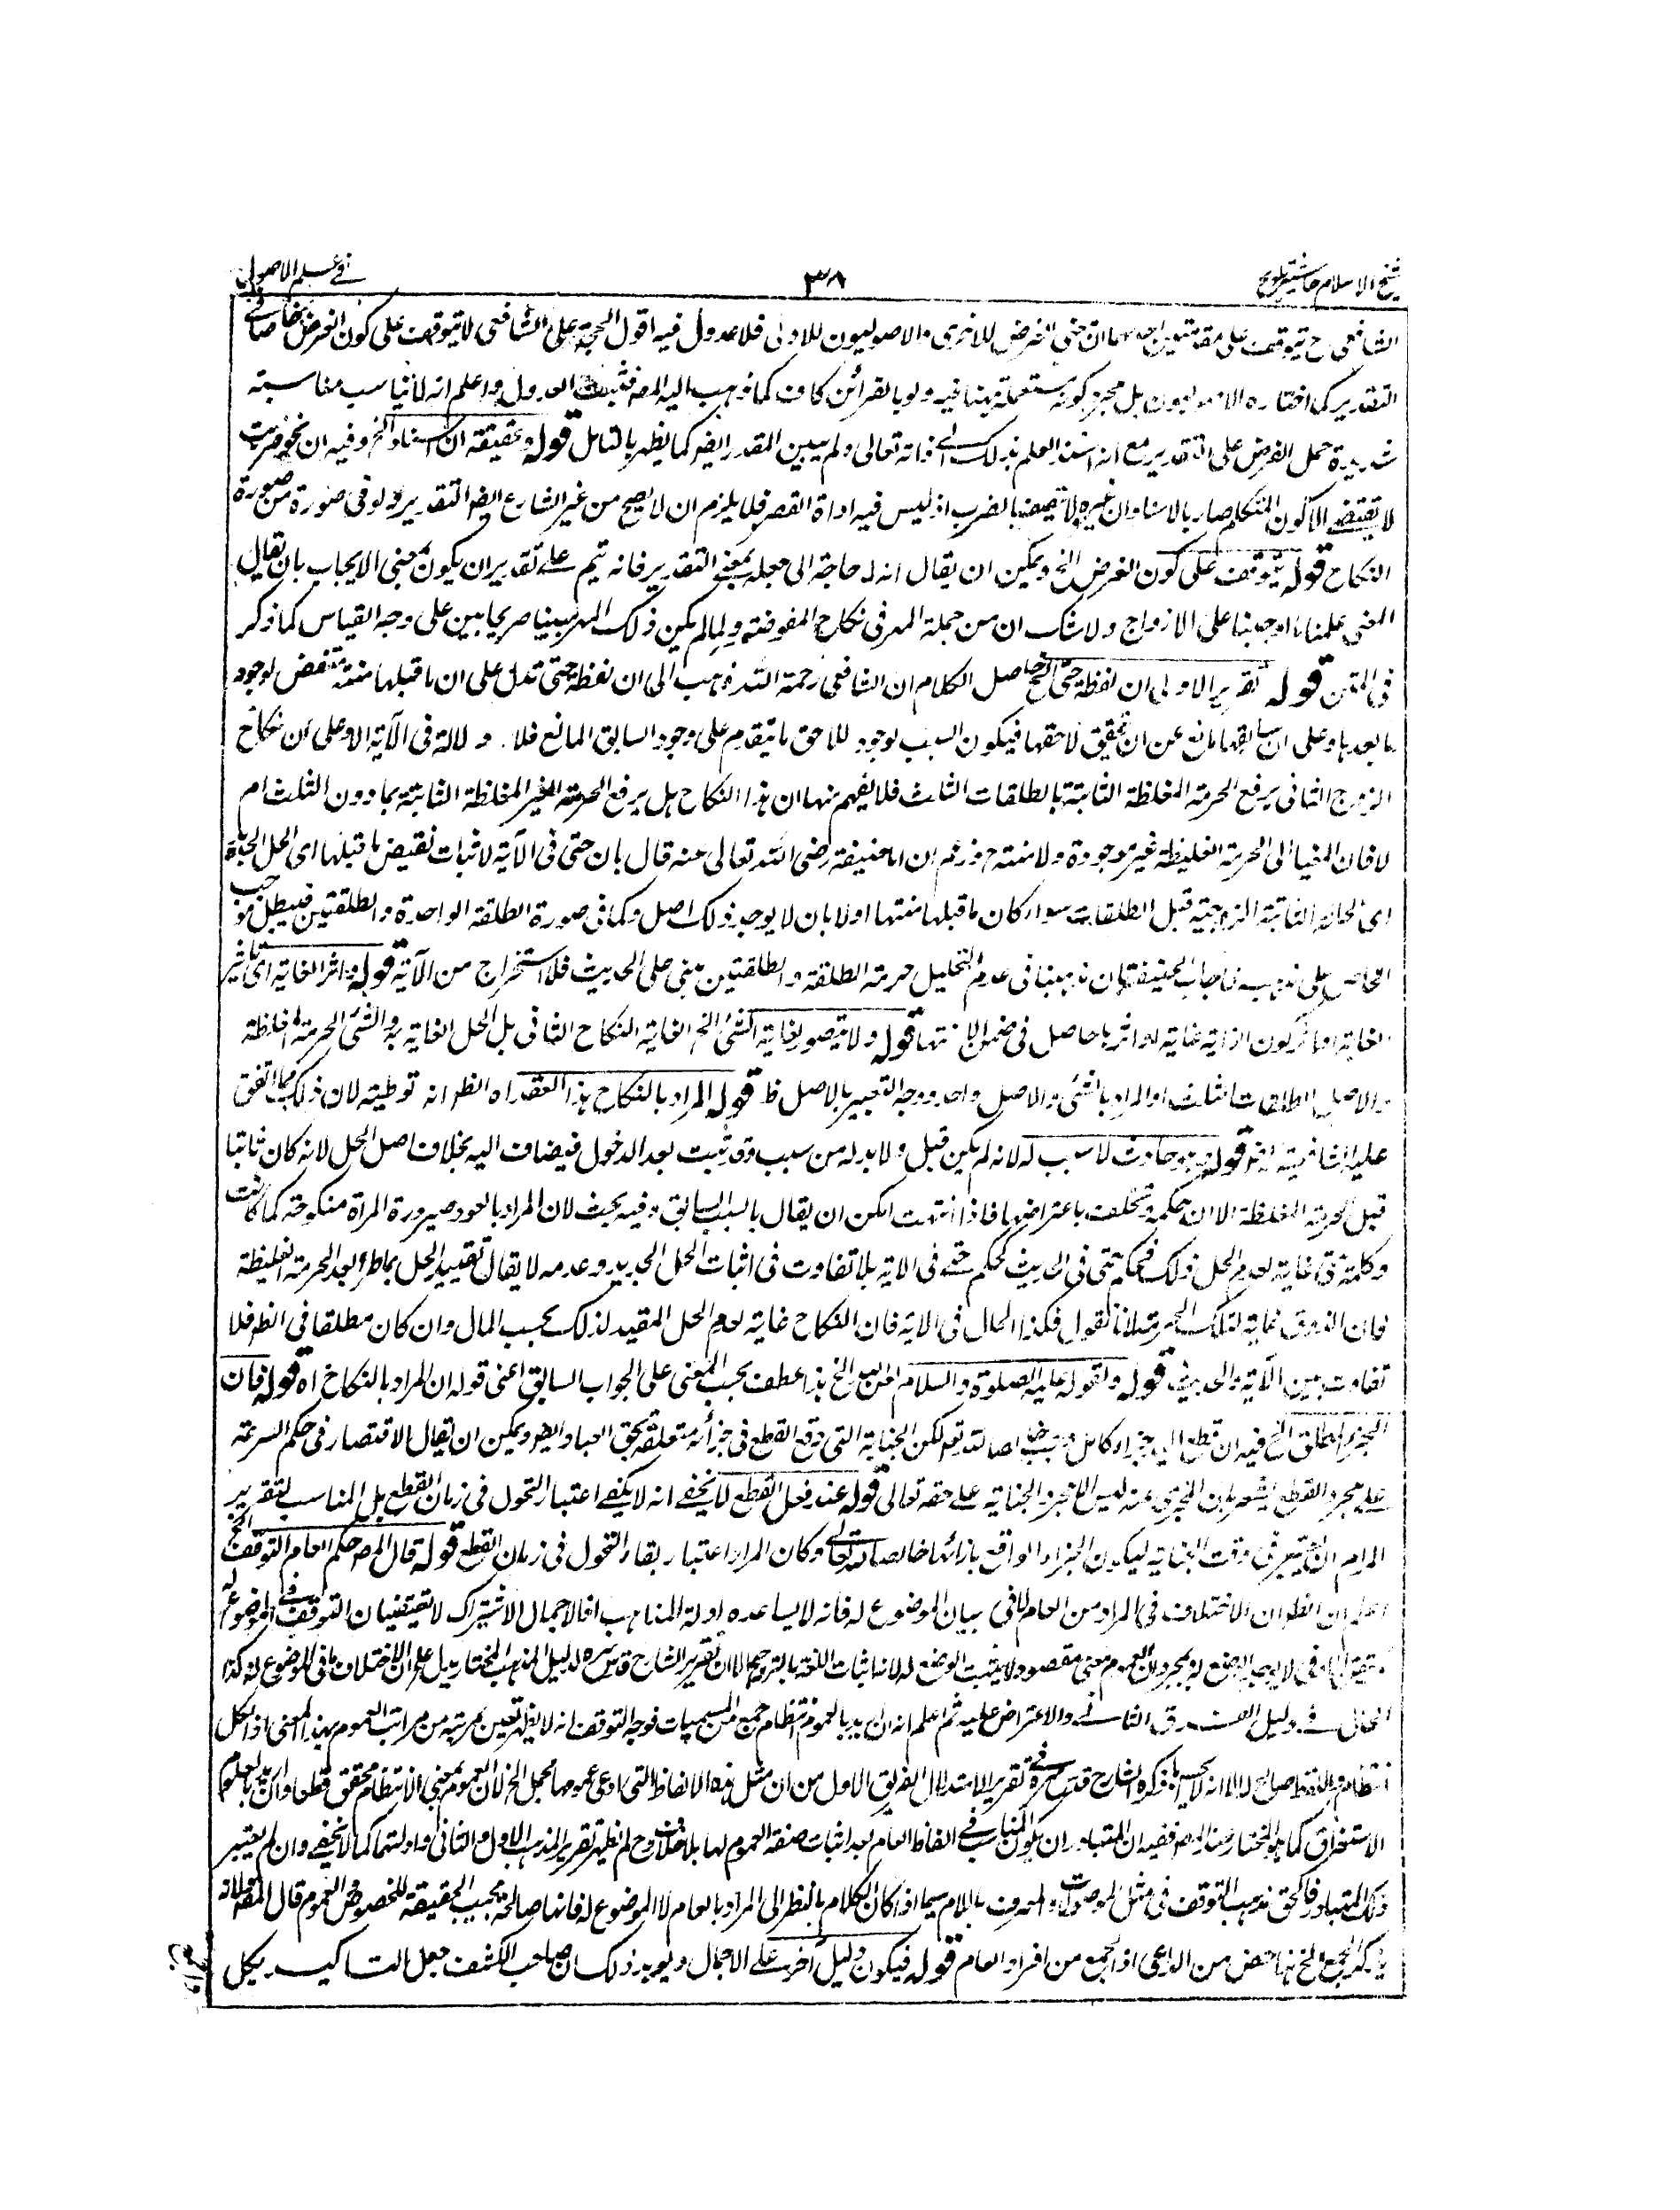 شيخ الاسلام حاشيه تلويح
٣٨
فى علم الاصول
الشافعى رح تتوقف على مقدمتين احدهما ان معنى الفرض للاخرى والاصوليون للاولى فلا عدول فيه اقول الحجة على الشافعى لا تتوقف على كون الفرض خاصا فى
التقدير كما اختاره الاصوليون بل مجرد كونه مستعملا ههنا فيه ولو بالقرائن كاف كما ذهب اليه المصنف العدول واعلم انه لا يناسب مناسبته
شديدة حمل الفرض على التقدير مع انه اسند العلم بذلك الى ذاته تعالى ولم يبين المقدر ايضا كما يظهر بالتامل قوله وحقيقته ان اسناد الخ وفيه ان نحو ضربت
لا يقتضى الا كون المتكلم ضاربا لاسناد ان غيره لا يتصف بالضرب اذ ليس فيه اداة القصر فلا يلزم ان لا يصح من غير الشارع ايضا التقدير ولو فى صورة من صورة
النكاح قوله يتوقف على كون الفرض الخ ويمكن ان يقال انه لا حاجة الى جعله بمعنى التقدير فانه يتم على تقدير ان يكون بمعنى الايجاب بان يقال
المعنى علمنا ما اوجبنا على الازواج ولا شك ان من جملة المهر فى نكاح المفوضة ولما لم يكن ذلك المهر مبينا صريحا بين على وجه القياس كما ذكر
فى المتن قوله تقرير الاولى ان لفظة حتى الخ حاصل الكلام ان الشافعى رحمة الله ذهب الى ان لفظة حتى تدل على ان ما قبلها منته منتقض لوجود
ما بعدها وعلى ان سابقها مانع عن ان تحقق لاحقها فيكون السبب لوجود للاحق ما يتقدم على وجود السابق المانع فلا دلالة فى الآية الا وعلى ان نكاح
الزوج الثانى يرفع الحرمة المغلظة الثابتة بالطلقات الثلث فلا يفهم منها ان هذا النكاح هل يرفع الحرمة الغير المغلظة الثابتة بما دون الثلث ام
لا فان المغيا الى الحرمة الغليظة غير موجودة ولا منته ح وزعم ان ابا حنيفة رضى الله تعالى عنه قال بان حتى فى الآية لاثبات نقيض ما قبلها اى الحل الجديد
اى الحالة الثابتة الزوجية قبل الطلقات سواء كان ما قبلها منتها اولا بان لا يوجد ذلك اصلا وكما فى صورة الطلقة الواحدة والطلقتين فيبطل موجب
الخاص على مذهبه فاجاب الحنيفة بان مذهبنا فى عدم التحليل حرمة الطلقة والطلقتين مبنى على الحديث فلا استخراج من الآية قوله واثر الغاية اى تاثير
الغاية انما يكون اذا غاية لو اثرها حاصل فى ضمن الانتها قوله ولا يتصور غاية الشئ الخ الغاية النكاح الثانى بل الحل الغاية به والشئ الحرمة المغلظة
والاصل الطلقات الثلث او المراد بالشئ والاصل واحد ووجه التعبير بالاصل ظ قوله المراد بالنكاح هذا العقد اه الظ انه توطية لان ذلك مما اتفق
عليه الشافعية ايضا قوله وهو حادث لا سبب له لانه لم يكن قبل ولا بد له من سبب وقد ثبت بعد الدخول فيضاف اليه بخلاف اصل الحل لانه كان ثابتا
قبل الحرمة المغلظة الا ان حكمه تخلف باعتراضها فاذا انتهت امكن ان يقال بالسبب السابق وفيه بحث لان المراد بالعود صيرورة المرأة منكوحة كما كانت
وكلمة حتى غاية لعدم الحل ذلك فحكم حتى فى الحديث كحكم حتى فى الاية بلا تفاوت فى اثبات الحل الجديد وعدمه لا يقال تقييد الحل بما طرأ بعد الحرمة الغليظة
فان الذوق غاية لتلك الحرمة لانا نقول فكذا الحال فى الاية فان النكاح غاية لعدم الحل المقيد لذلك بحسب المآل وان كان مطلقا فى الظ فلا
تفاوت بين الآية والحديث قوله ولقوله عليه الصلوة والسلام لعن الله الخ هذا عطف بحسب المعنى على الجواب السابق اعنى قوله ان المراد بالنكاح اه قوله فان
الجزاء المطلق الخ فيه ان قطع اليد جزاء كامل وجب خالصا لله تع لكن الجناية التى وقع القطع فى جزائه متعلقة بحق العباد ايضا ويمكن ان يقال الاقتصار فى حكم السرقة
على مجرد القطع يشعر بان المجزى عنه ليس الا مجرد الجناية على حقه تعالى قوله عند فعل القطع لا يخفى انه لا يكفى اعتبار التحول فى زمان القطع بل المناسب لتقرير
المرام ان يعتبر فى وقت الجناية ليكون الجزاء الواقع بازائها خالصا لله تعالى وكان المراد اعتبار بقاء التحول فى زمان القطع قوله قال المص حكم العام التوقف الخ
اعلم ان الظ ان الاختلاف فى المراد من العام لا فى بيان الموضوع له فانه لا يساعده ادلة المذاهب اذ الاجمال والاشتراك لا يقتضيان التوقف فى الموضوع له
لا يوجب الوضع له وبمجرد ان العموم معنى مقصود لا يثبت الوضع له لانه اثبات اللغة بالترجيح الا ان تقرير الشارح قدس سره لدليل المذهب المختار يدل على ان الاختلاف ما فى الموضوع له كذا
الحال فى دليل الفرق الثانى والاعتراض عليه ثم اعلم انه ان اريد بالعموم انتظام جمع من المسميات فوجه التوقف انه لا يظهر تعين مرتبة من مراتب العموم بهذا المعنى اذ الكل
انتظام واللفظ صالح له الا انه لا يحسن ما ذكره الشارح قدس سره فى تقرير الاستدلال الفريق الاول من ان مثل هذه الالفاظ التى ادعى عمومها مجمل الخ لان العموم بمعنى الانتظام محقق قطعا وان اريد بالعموم
الاستغراق كما هو المختار عند المص ففيه ان المتبادر ان يكون المناسب فى الفاظ العام بعد اثبات صفة العموم لها بلا خلاف وح لم يظهر تقرير المذهب الاول والثانى وادلتهما كما لا يخفى وان لم يعتبر
ذلك المتبادر فالحق مذهب التوقف فى مثل الموصولات والمعرف باللام سيما اذا كان الكلام بالنظر الى المراد بالعام لا الموضوع له فانها صالحة بحسب الحقيقة للخصوص والعموم قال المص لانه
يؤكد الجمع الخ هذا محض من المدعى اذ الجمع من افراد العام قوله فيكون دليل آخر على الاجمال ويؤيد ذلك ان صاحب الكشف جعل التاكيد بكل